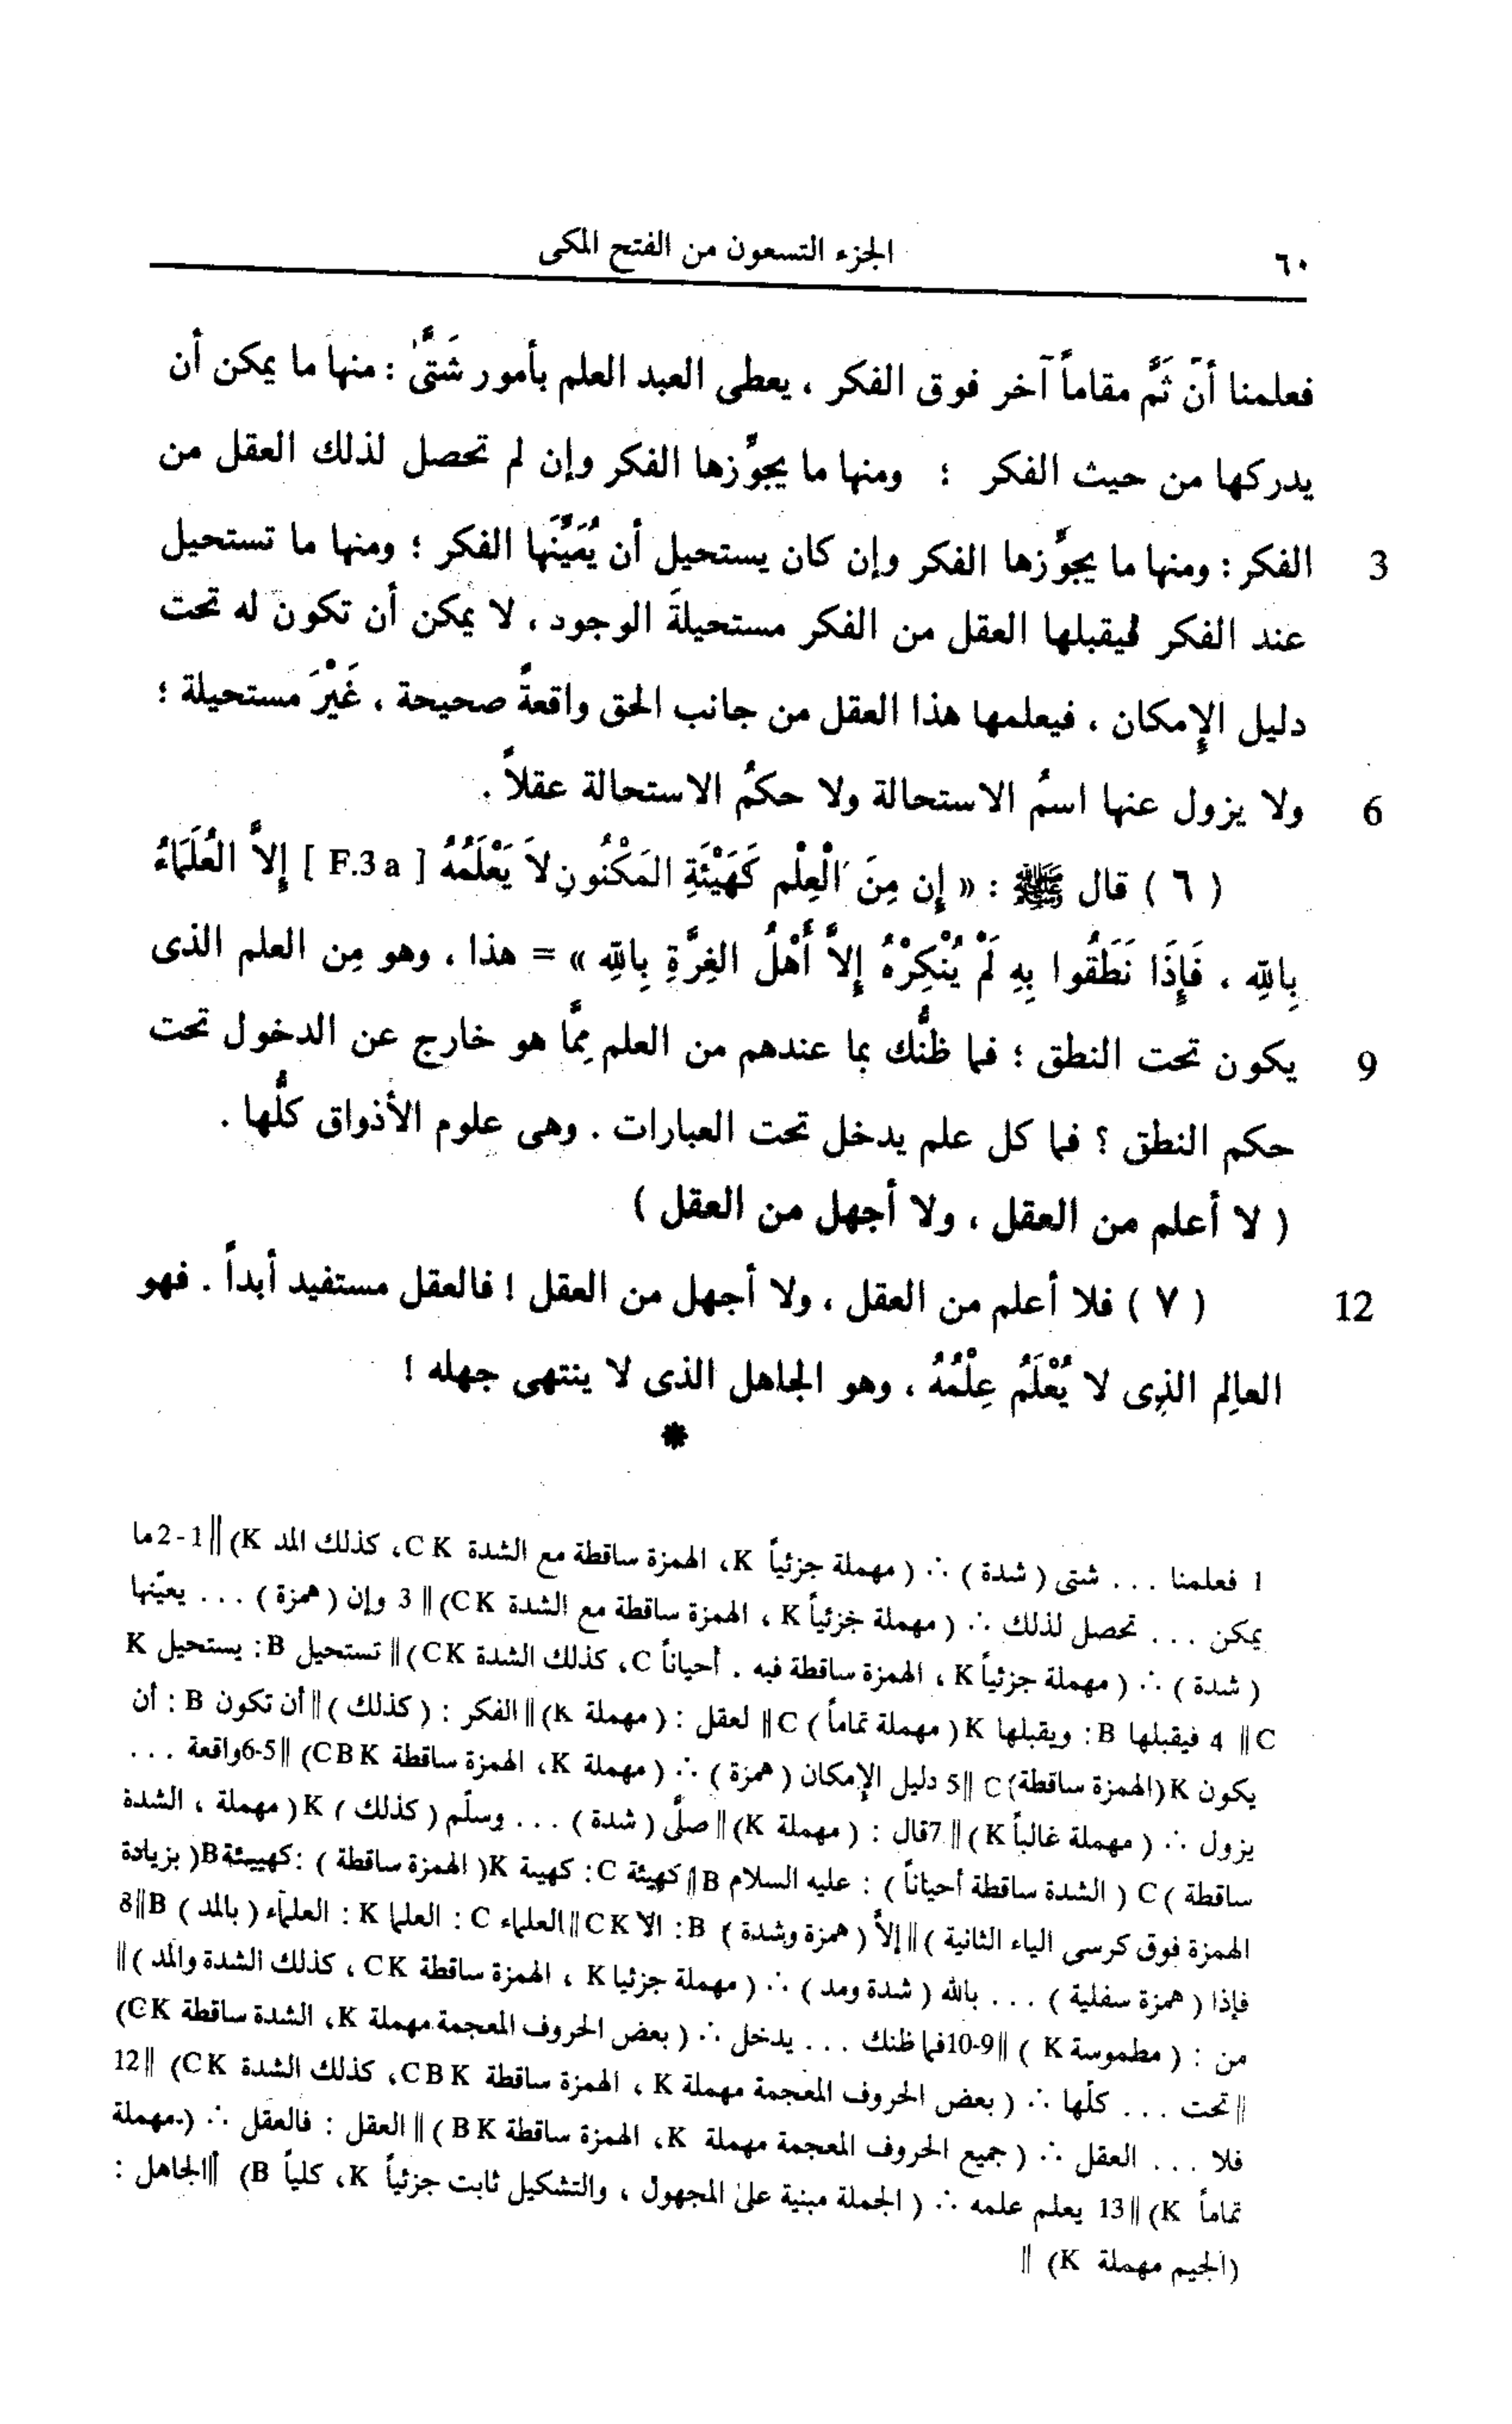 ٦٠ الجزء التسعون من الفتح المكى
فعلمنا أنّ ثَمَّ مقاماً آخر فوق الفكر ، يعطى العبد العلم بأمور شَتَّىٰ : منها ما يمكن أن
يدركها من حيث الفكر ؛ ومنها ما يجوِّزها الفكر وإن لم تحصل لذلك العقل من
3 الفكر : ومنها ما يجوِّزها الفكر وإن كان يستحيل أن يُعَيِّنَها الفكر ؛ ومنها ما تستحيل
عند الفكر فيقبلها العقل من الفكر مستحيلةَ الوجود ، لا يمكن أن تكون له تحت
دليل الإمكان ، فيعلمها هذا العقل من جانب الحق واقعةً صحيحة ، غَيْرَ مستحيلة ؛
6 ولا يزول عنها اسمُ الاستحالة ولا حكمُ الاستحالة عقلاً .
( ٦ ) قال ﷺ : « إِن مِنَ الْعِلْمِ كَهَيْئَةِ المَكْنُونِ لاَ يَعْلَمُهُ [ F.3a ] إِلاَّ العُلَمَاءُ
بِاللهِ ، فَإِذَا نَطَقُوا بِهِ لَمْ يُنْكِرْهُ إِلاَّ أَهْلُ الغِرَّةِ بِاللهِ » = هذا ، وهو مِن العلم الذى
9 يكون تحت النطق ؛ فما ظنُّك بما عندهم من العلم مِمَّا هو خارج عن الدخول تحت
حكم النطق ؟ فما كل علم يدخل تحت العبارات . وهى علوم الأذواق كلُّها .
( لا أعلم من العقل ، ولا أجهل من العقل )
12 ( ٧ ) فلا أعلم من العقل ، ولا أجهل من العقل ! فالعقل مستفيد أبداً . فهو
العالِم الذِى لا يُعْلَمُ عِلْمُهُ ، وهو الجاهل الذى لا ينتهى جهله !
*
1 فعلمنا ... شتى ( شدة ) ∴ ( مهملة جزئياً K، الهمزة ساقطة مع الشدة CK، كذلك المد K) || 1-2 ما
يمكن ... تحصل لذلك ∴ ( مهملة جزئياً K ، الهمزة ساقطة مع الشدة CK) || 3 وإن ( همزة ) ... يعيّنها
( شدة ) ∴ ( مهملة جزئياً K ، الهمزة ساقطة فيه . أحياناً C، كذلك الشدة CK) || تستحيل B: يستحيل K
C || 4 فيقبلها B : ويقبلها K ( مهملة تماماً ) C || لعقل : ( مهملة K) || الفكر : ( كذلك ) || أن تكون B : أن
يكون K (الهمزة ساقطة) C || 5 دليل الإمكان ( همزة ) ∴ ( مهملة K، الهمزة ساقطة CBK) || 5-6 واقعة ...
يزول ∴ ( مهملة غالباً K) || 7 قال : ( مهملة K) || صلَّى ( شدة ) ... وسلّم ( كذلك ) K ( مهملة ، الشدة
ساقطة ) C ( الشدة ساقطة أحياناً ) : عليه السلام B || كهيئة C : كهية K ( الهمزة ساقطة ) : كهييئة B ( بزيادة
الهمزة فوق كرسى الياء الثانية ) || إلاَّ ( همزة وشدة ) B : الا CK || العلماء C : العلما K : العلمآء ( بالمد ) B || 8
فإذا ( همزة سفلية ) ... بالله ( شدة ومد ) ∴ ( مهملة جزئيا K ، الهمزة ساقطة CK ، كذلك الشدة والمد ) ||
من : ( مطموسة K ) || 9-10 فما ظنك ... يدخل ∴ ( بعض الحروف المعجمة مهملة K، الشدة ساقطة CK)
|| تحت ... كلّها ∴ ( بعض الحروف المعجمة مهملة K ، الهمزة ساقطة CBK، كذلك الشدة CK) || 12
فلا ... العقل ∴ ( جميع الحروف المعجمة مهملة K، الهمزة ساقطة BK ) || العقل : فالعقل ∴ ( مهملة
تماماً K) || 13 يعلم علمه ∴ ( الجملة مبنية على المجهول ، والتشكيل ثابت جزئياً K، كلياً B) || الجاهل :
(الجيم مهملة K) ||